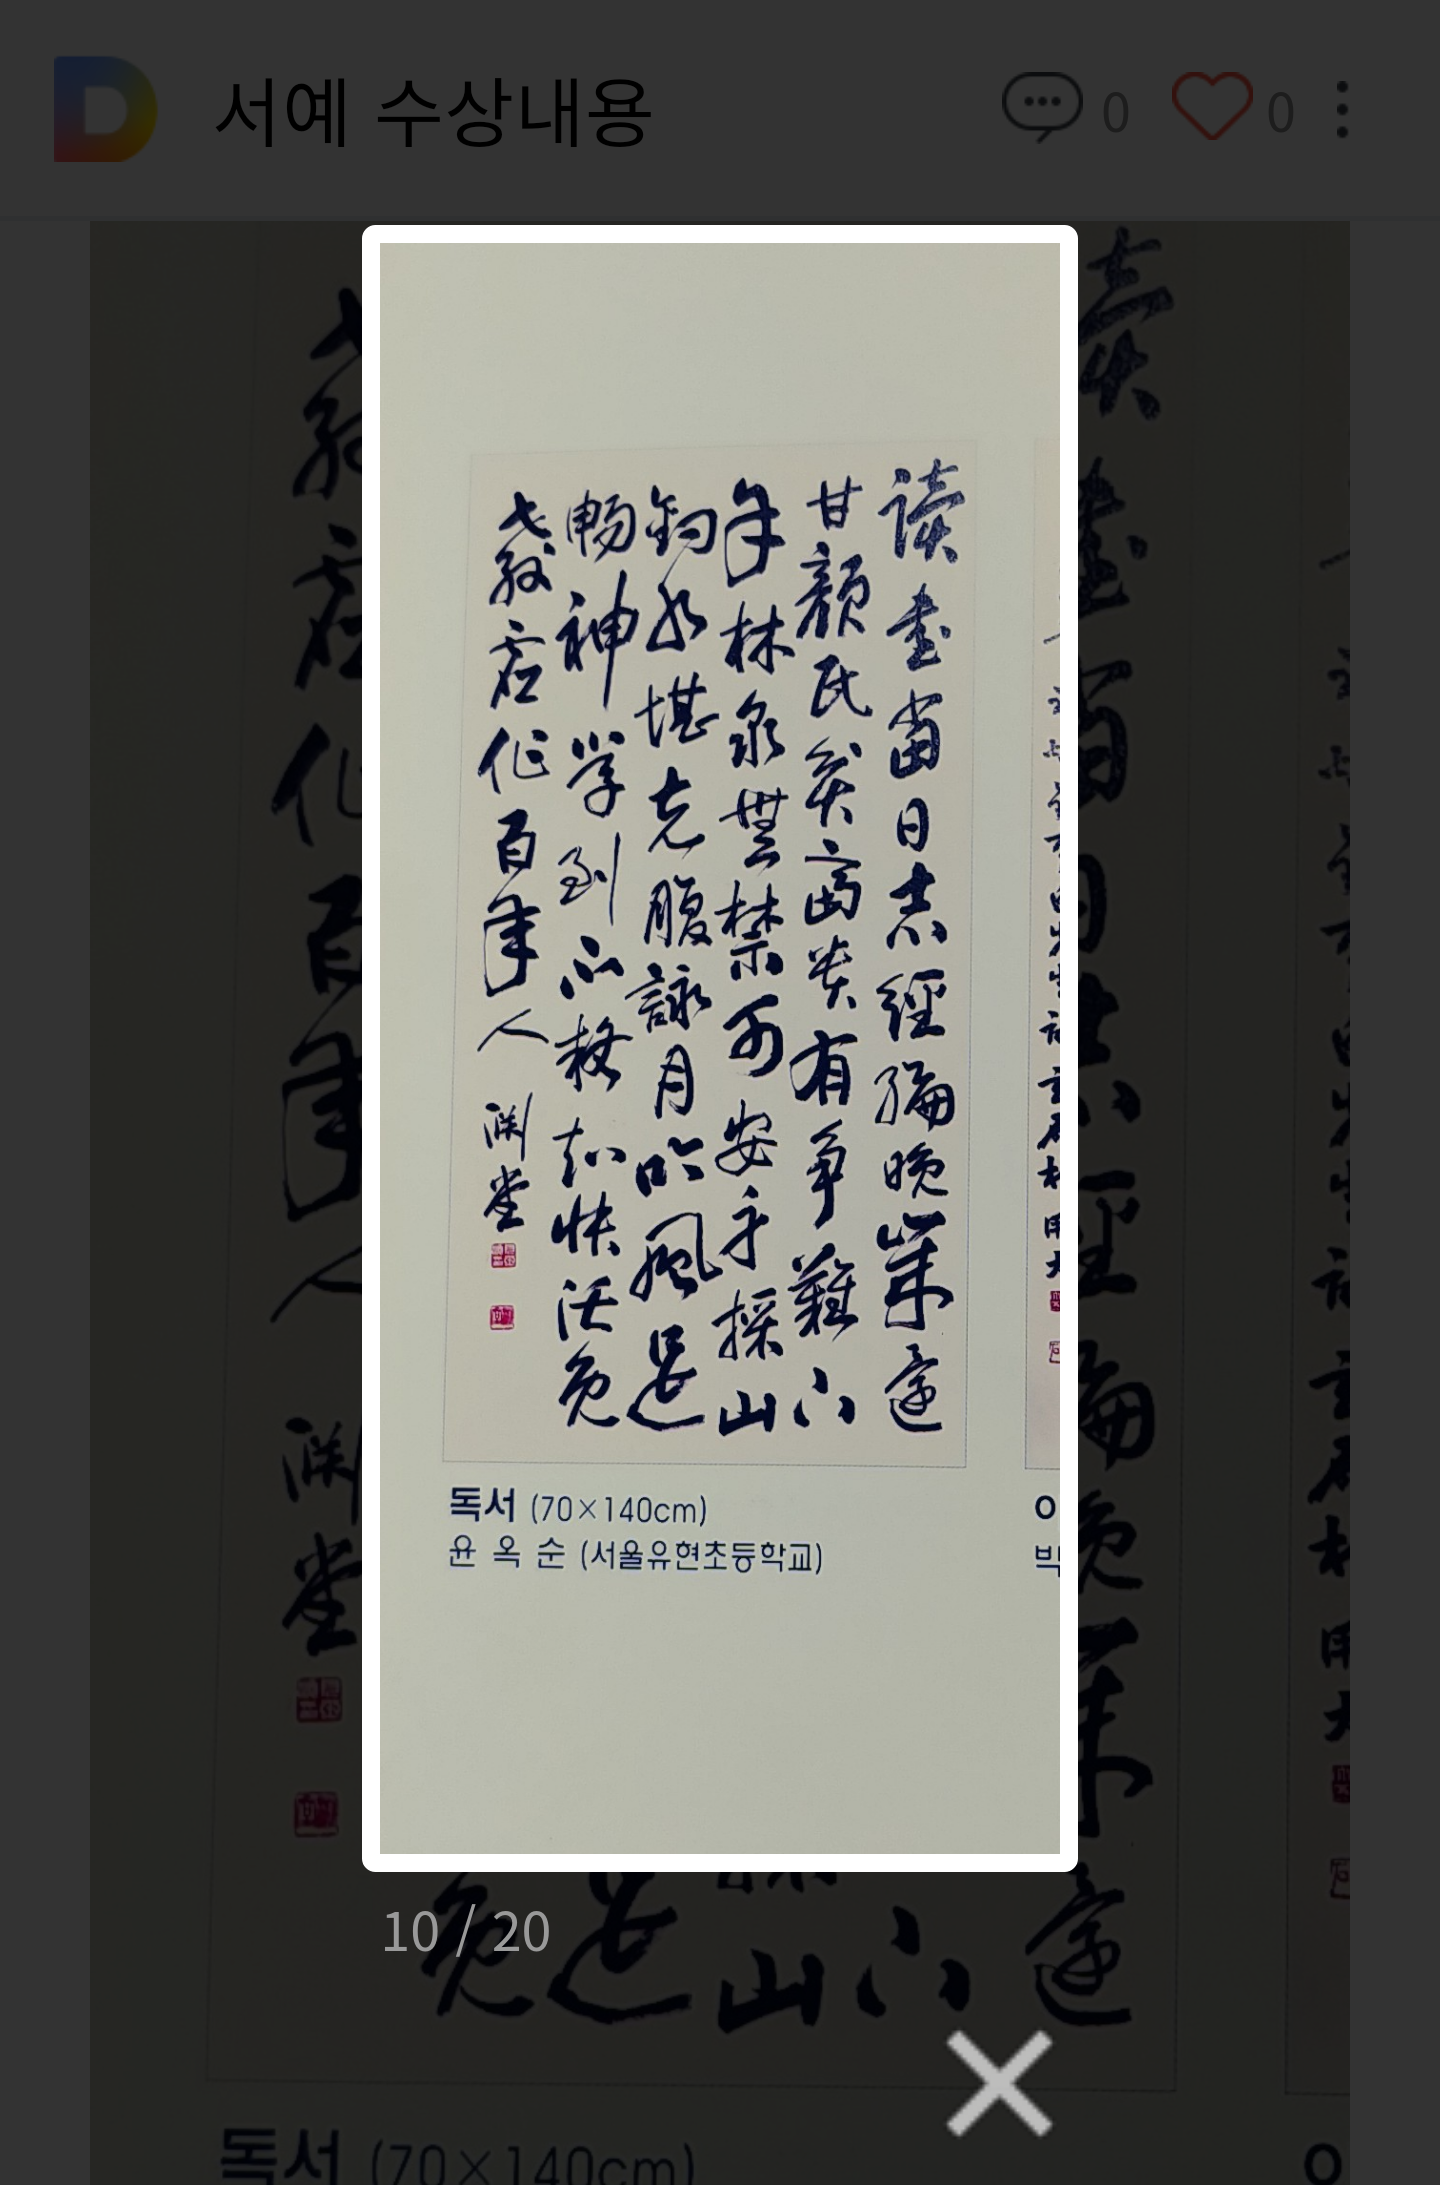 서예 수상내용
0
0
讀書當日志經綸晩歲還
甘顔氏貧富貴有爭難下
手林泉無禁可安身採山
釣水堪充腹詠月吟風足
暢神學到不疑知快活免
敎虛作百年人 淵堂
독서 (70×140cm)
윤 옥 순 (서울유현초등학교)
10 / 20
독서 (70×140cm)